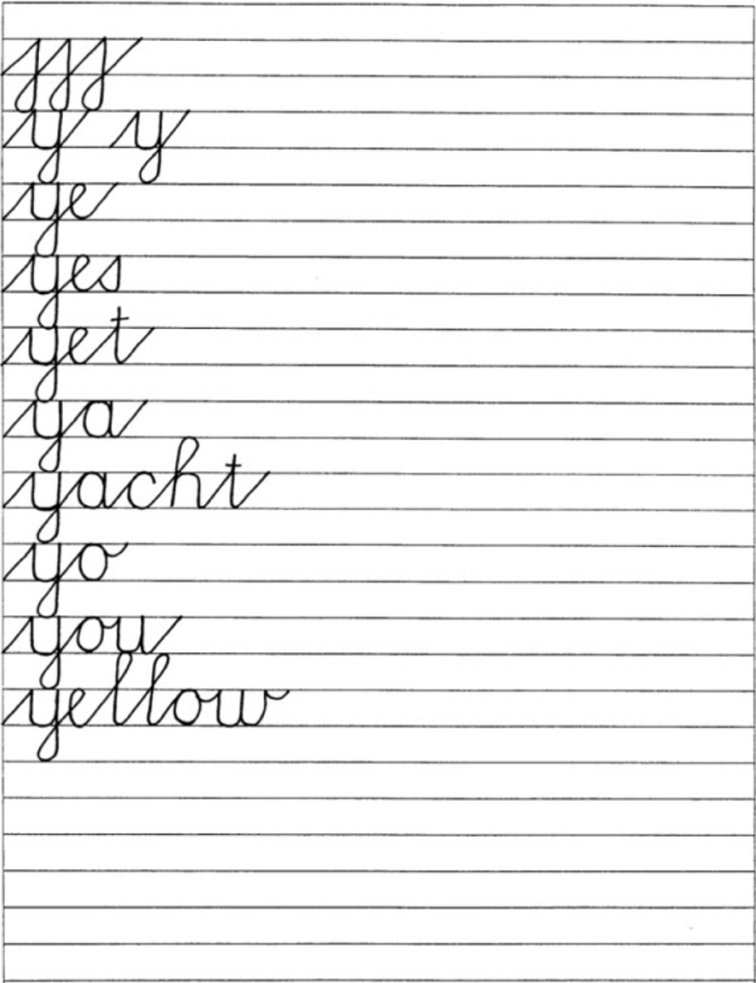 y y
ye
yes
yet
ya
yacht
yo
you
yellow